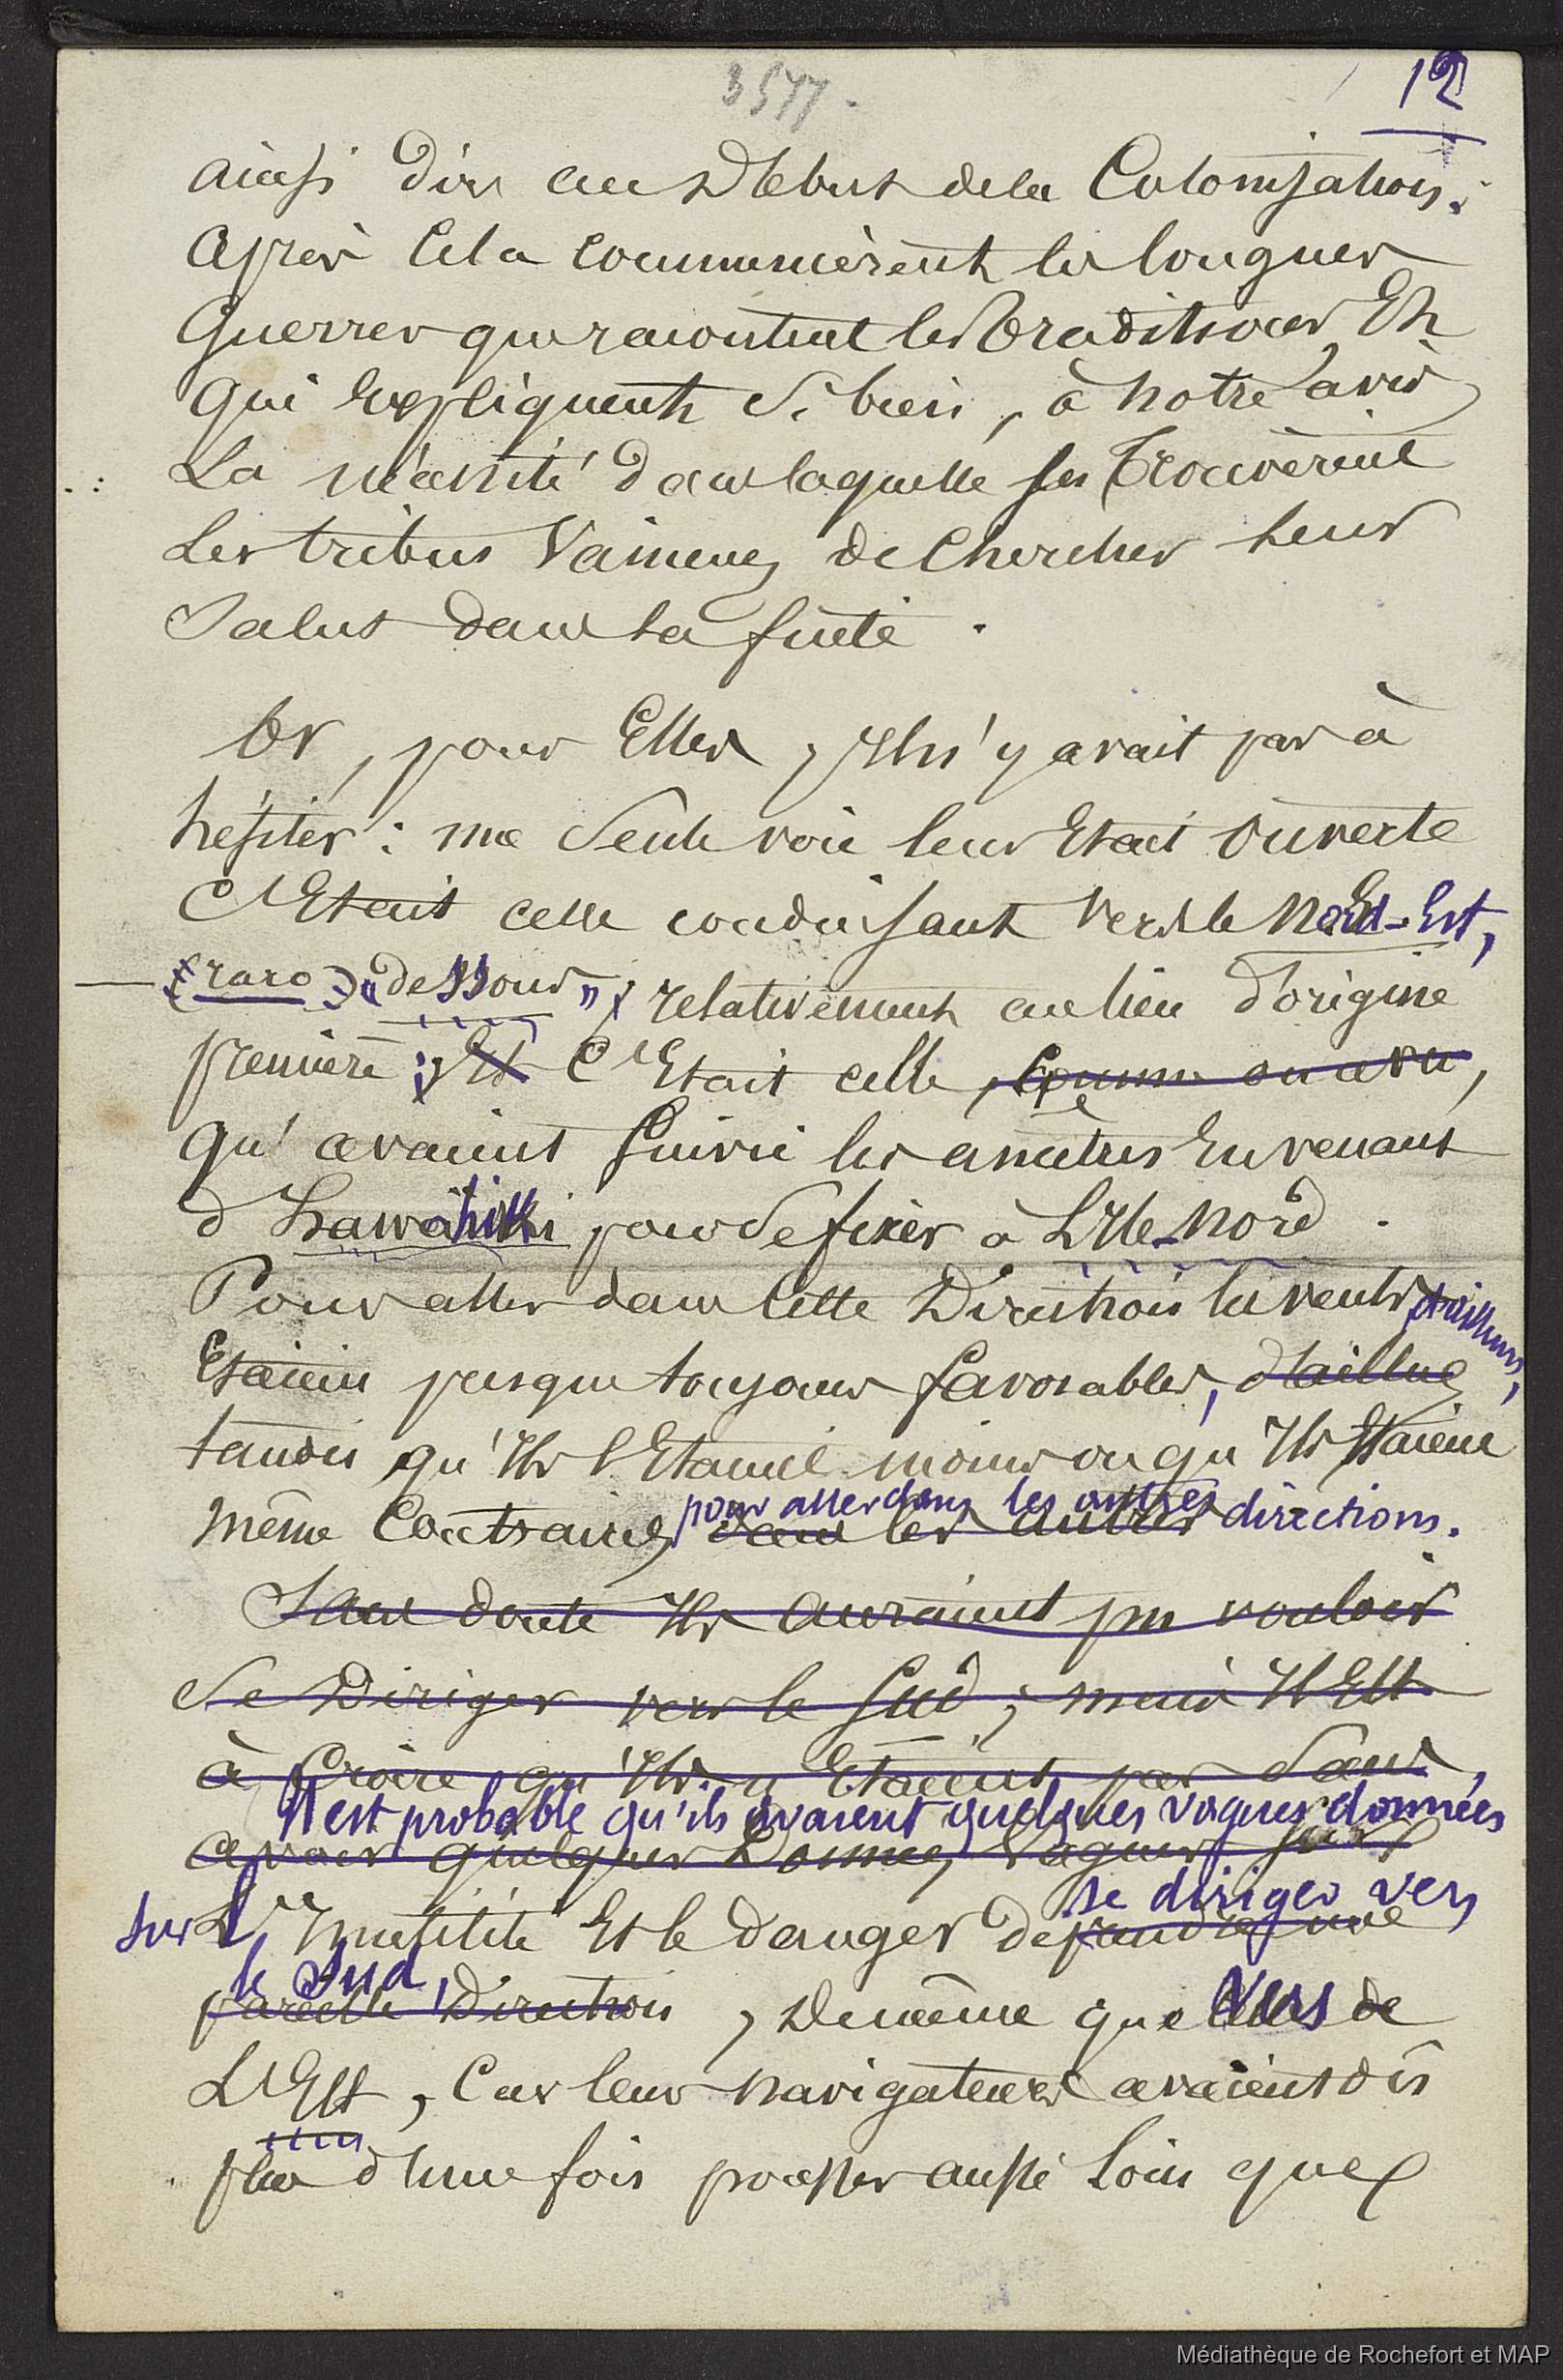 3577.
12
ainsi dire au Début de la Colonisation;
Après Cela Commencèrent les longues
Guerres que racontent les Traditions Et
qui Expliquent Si bien, à notre avis,
La nécessité dans laquelle se Trouvèrent
Les tribus Vaincues de Chercher leur
Salut dans la fuite.
Or, pour Elles, Il n'y avait pas à
hésiter : une Seule voie leur Etait Ouverte
C'Etait celle conduisant Vers le Nord-Est,
(raro) "dessous", relativement au lieu d'origine
première ; Et C'Etait celle, Comme on a vu,
qu'avaient Suivie les ancêtres En venant
d'Hawahiki pour Se fixer à L'Ile-Nord.
Pour aller dans Cette Direction les vents, d'ailleurs,
Etaient presque toujours favorables, d'ailleurs
tandis qu'Ils l'Etaient moins ou qu'Ils Etaient
pour aller dans les autres directions.
même Contraires dans les autres
Sans doute Ils auraient pu vouloir
Se Diriger vers le Sud ; mais Il Est
à Croire qu'Ils n'Etaient pas Sans
Il est probable qu'ils avaient quelques vagues données
avoir quelques Données Vagues sur
se diriger vers
sur L'Inutilité Et le danger de prendre une
le Sud,
pareille Direction, De même que vers de
L'Est, Car leurs navigateurs avaient dû
plus d'une fois pousser aussi Loin que
Médiathèque de Rochefort et MAP